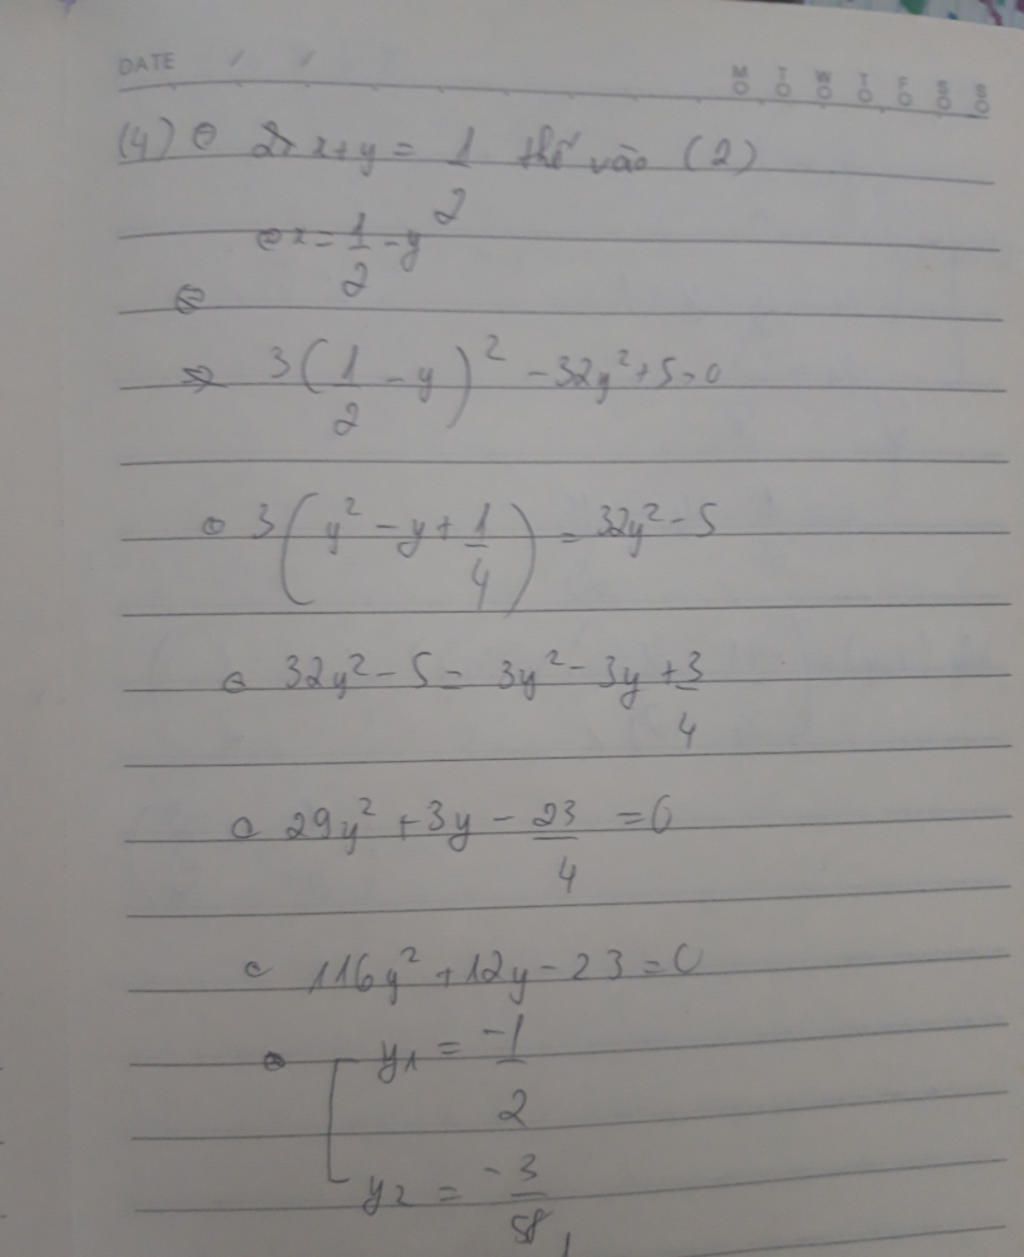 DATE / /
M T W T F S S
(4) ⇔ x + y = 1/2 thế vào (2)
⇔ x = 1/2 - y
⇔
⇒ 3(1/2 - y)² - 32y² + 5 = 0
⇔ 3(y² - y + 1/4) = 32y² - 5
⇔ 32y² - 5 = 3y² - 3y + 3/4
⇔ 29y² + 3y - 23/4 = 0
⇔ 116y² + 12y - 23 = 0
⇔ [ y1 = -1/2
y2 = -3/58